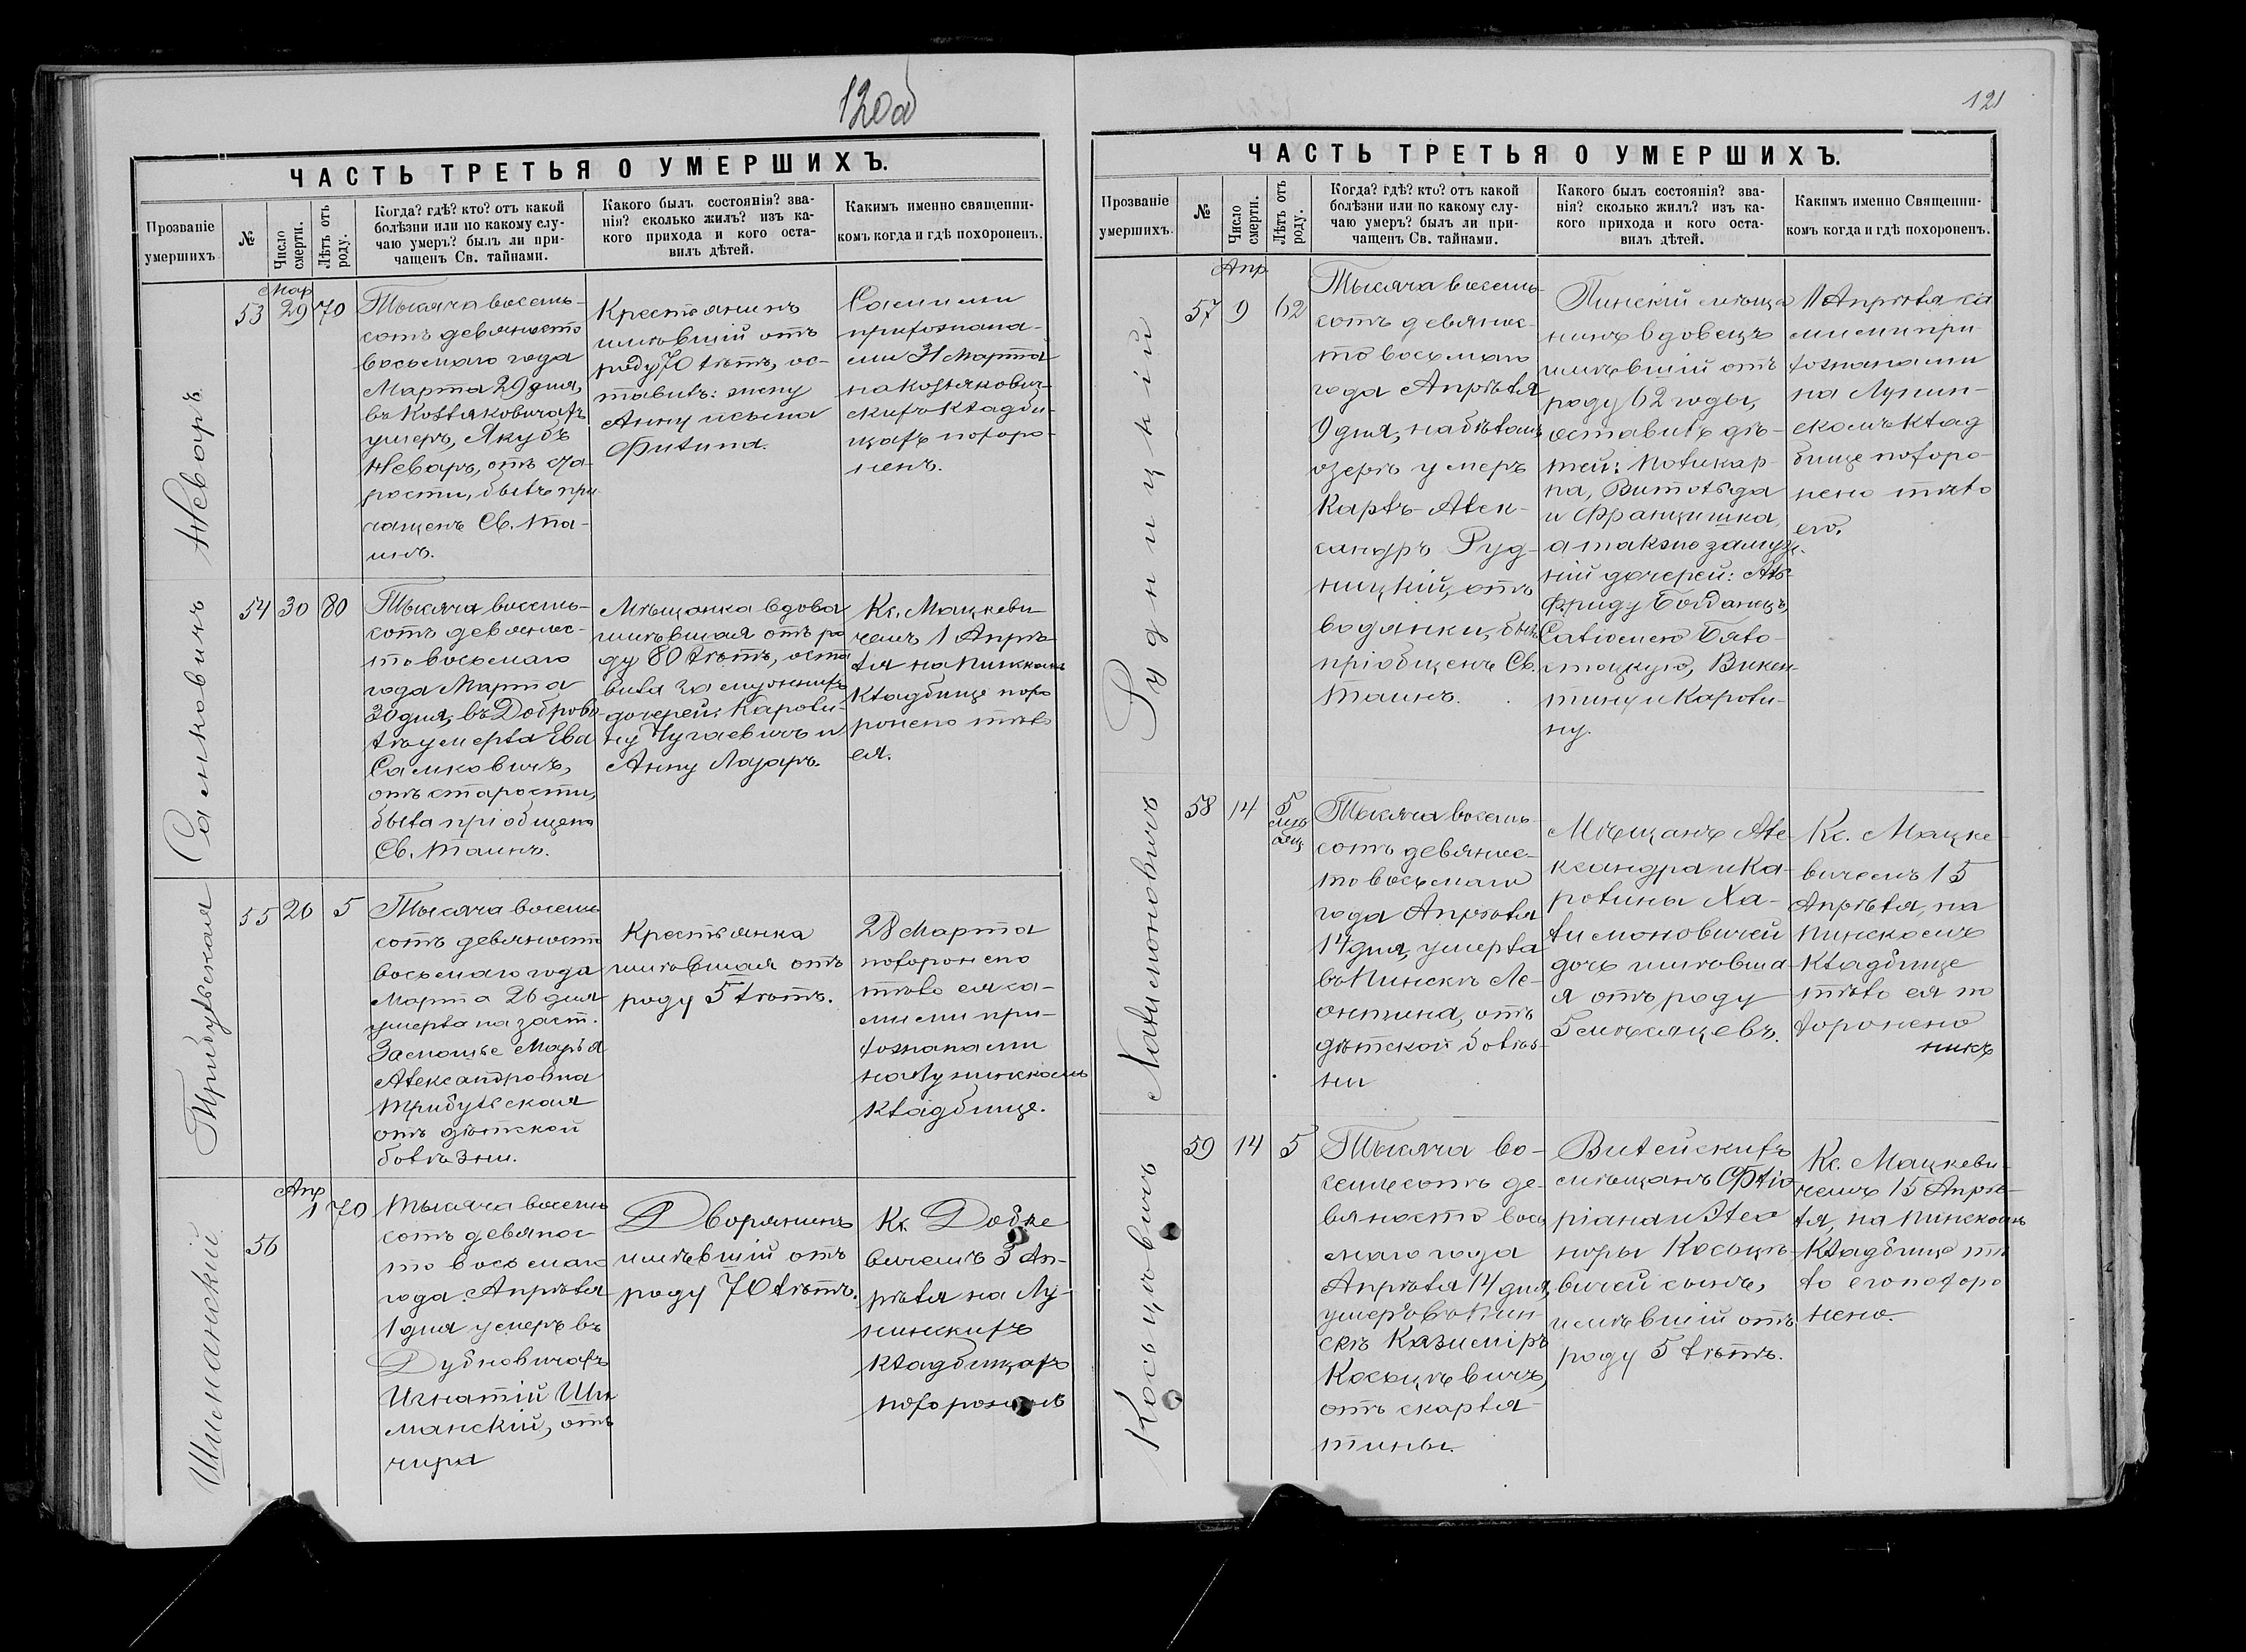 120об
ЧАСТЬ ТРЕТЬЯ О УМЕРШИХЪ.
Прозваніе
умершихъ
№
Число
смерти.
Лѣтъ отъ
роду.
Когда? гдѣ? кто? отъ какой
болѣзни или по какому слу-
чаю умеръ? былъ ли при-
чащенъ Св. тайнами.
Какого былъ состоянія? зва-
нія? сколько жилъ? изъ ка-
кого прихода и кого оста-
вилъ дѣтей.
Какимъ именно священни-
комъ когда и гдѣ похороненъ.
Неваръ
Мар
53 29 70
Тысяча восемь-
сотъ девяносто
восьмаго года
Марта 29 дня,
въ Колляковичахъ
умеръ, Якубъ
Неваръ, отъ ста-
рости, былъ при
чащенъ Св. Та-
инъ.
Крестьянинъ
имѣвшій отъ
роду 70 лѣтъ, ос-
тавилъ: жену
Анну и сына
Филипа.
Самими
прихожана-
ми 31 Марта
на Коллякович-
скихъ кладби-
щахъ похоро-
ненъ.
Самковичъ
54 30 80
Тысяча восемь-
сотъ девянос-
то восьмаго
года Марта
30 дня, въ Доброво-
лѣ умерла Ева
Самковичъ,
отъ старости,
была пріобщена
Св. Таинъ.
Мѣщанка вдова
имѣвшая отъ ро
ду 80 лѣтъ, оста
вила замужнихъ
дочерей: Кароли-
ну Чугаевичъ и
Анну Лазаръ.
Кс. Мацкеви-
чемъ 1 Апрѣ-
ля на Пинскомъ
кладбище похо
ронено тѣло
ея.
Трибульская
55 26 5
Тысяча восемь
сотъ девяносто
восьмаго года
Марта 26 дня
умерла на заст.
Засмошье Марья
Александровна
Трибульская
отъ дѣтской
болѣзни.
Крестьянка
имѣвшая отъ
роду 5 лѣтъ.
28 Марта
похоронено
тѣло ея са-
мими при-
хожанами
на Лунинскомъ
кладбище.
Шиманскій
Апр
56 1 70
Тысяча восемь
сотъ девянос
то восьмаго
года Апрѣля
1 дня умеръ въ
Дубновичахъ
Игнатій Ши
манскій, отъ
чира
Дворянинъ
имѣвшій отъ
роду 70 лѣтъ.
Кс. Добке
вичемъ 3 Ап-
рѣля на Лу-
нинскихъ
кладбищахъ
похороненъ
121
ЧАСТЬ ТРЕТЬЯ О УМЕРШИХЪ.
Прозваніе
умершихъ.
№
Число
смерти.
Лѣтъ отъ
роду.
Когда? гдѣ? кто? отъ какой
болѣзни или по какому слу-
чаю умеръ? былъ ли при-
чащенъ Св. тайнами.
Какого былъ состоянія? зва-
нія? сколько жилъ? изъ ка-
кого прихода и кого оста-
вилъ дѣтей.
Какимъ именно Священни-
комъ когда и гдѣ похороненъ.
Рудницкій
Апр
57 9 62
Тысяча восемь-
сотъ девянос-
то восьмаго
года Апрѣля
9 дня, на бѣломъ
озерѣ умеръ
Карлъ-Алек-
сандръ Руд-
ницкій, отъ
водянки, былъ
пріобщенъ Св.
Таинъ.
Пинскій мѣща
нинъ вдовецъ
имѣвшій отъ
роду 62 годы,
оставилъ дѣ-
тей: Поликар-
па, Витольда
и Францишка,
а также замуж-
ній дочерей: Аль-
фриду Богданецъ,
Саломею Бяло-
стоцкую, Викен-
тину и Кароли-
ну.
11 Апрѣля са
мими при-
хожанами
на Лунин-
скомъ клад
бище похоро-
нено тѣло
его.
Халимоновичъ
58 14 5
мѣс
яц
Тысяча восемь-
сотъ девянос-
то восьмаго
года Апрѣля
14 дня, умерла
въ Пинскѣ Ле-
онтина, отъ
дѣтской болѣз-
ни
Мѣщанъ Але-
ксандра и Ка-
ролины Ха-
лимоновичей
дочь имѣвша-
я отъ роду
5 мѣсяцевъ.
Кс. Мацке-
вичемъ 15
Апрѣля, на
Пинскомъ
кладбище
тѣло ея по
хоронено
Косьцѣвичъ
59 14 5
Тысяча во-
семьсотъ де-
вяносто вось
маго года
Апрѣля 14 дня,
умеръ въ Пин
скѣ Казиміръ
Косьцѣвичъ,
отъ скарла-
тины.
Вилейскихъ
мѣщанъ Фло
ріана и Элео
норы Косьцѣ-
вичей сынъ,
имѣвшій отъ
роду 5 лѣтъ.
Кс. Мацкеви-
чемъ 15 Апрѣ-
ля, на Пинскомъ
кладбище тѣ
ло его похоро
нено.